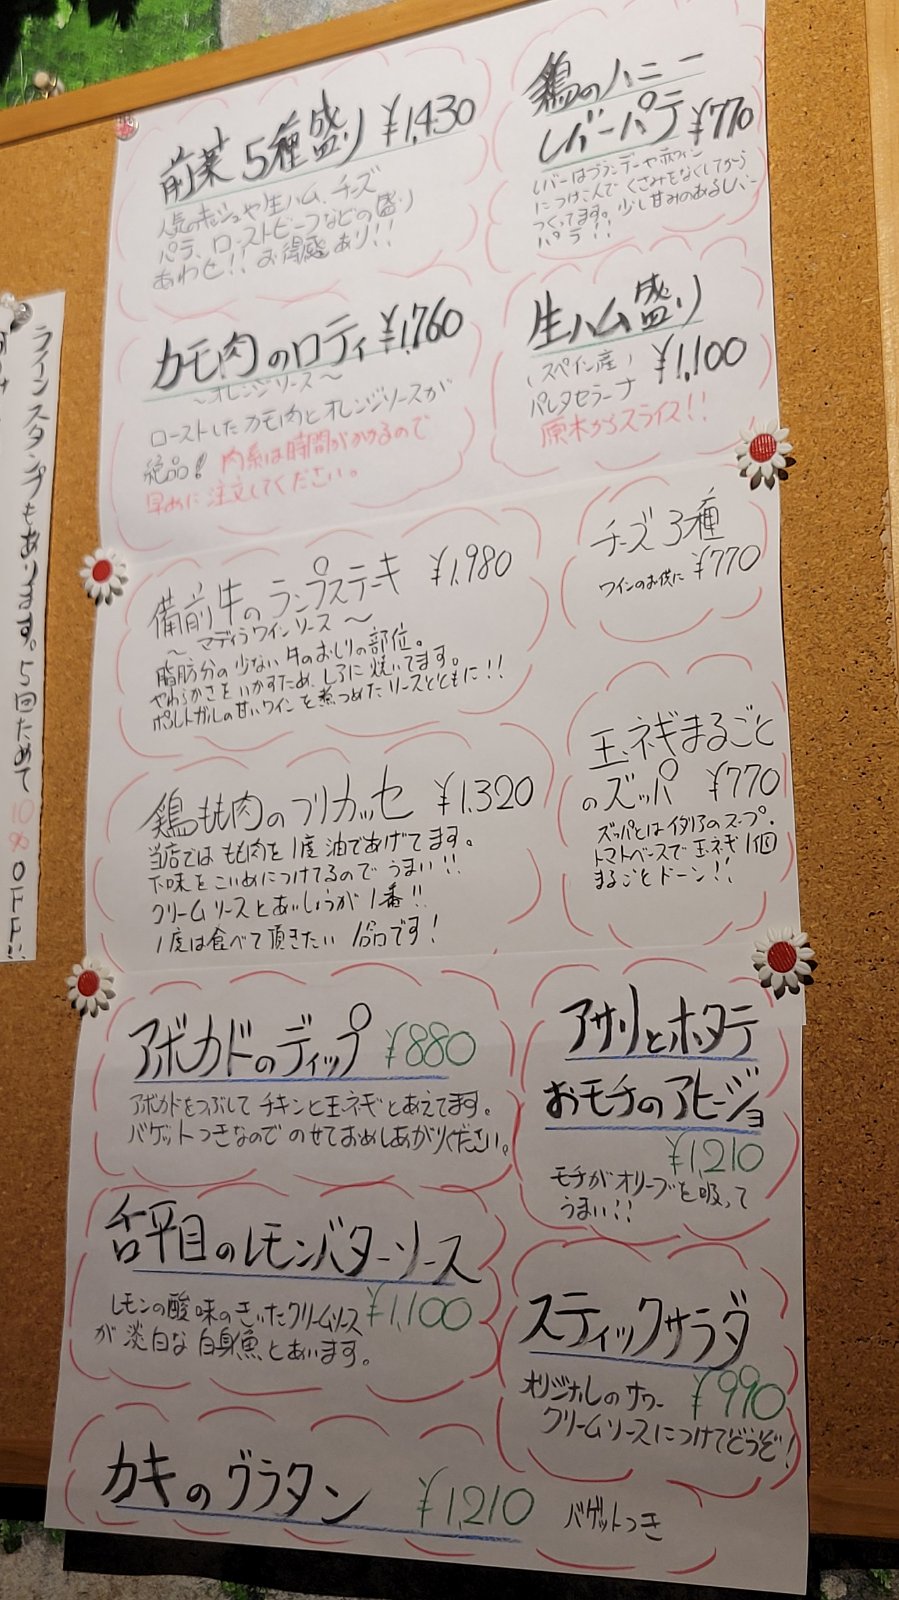 前菜5種盛り ¥1,430
人気のキッシュや生ハム、チーズ
パテ、ローストビーフなどの盛り
あわせ!! お得感あり!!
鶏のハニー
レバーパテ ¥770
レバーはブランデーや赤ワイン
につけこんで くさみをなくしてから
つくってます。少し甘みのあるレバー
パテ!!
カモ肉のロティ ¥1,760
～オレンジソース～
ローストしたカモ肉とオレンジソースが
絶品!! 肉系は時間がかかるので
早めに注文してください。
生ハム盛り
(スペイン産) ¥1,100
パレタセラーナ
原木からスライス!!
備前牛のランプステーキ ¥1,980
～マディラワインソース～
脂肪分の少ない牛のおしりの部位。
やわらかさをいかすため、レアに焼いてます。
ポルトガルの甘いワインを煮つめたソースとともに!!
チーズ3種
ワインのお供に ¥770
鶏もも肉のフリカッセ ¥1,320
当店ではもも肉を1度油であげてます。
下味をこいめにつけてるのでうまい!!
クリームソースとあいしょうが1番!!
1度は食べて頂きたい1品です!
玉ネギまるごと
のズッパ ¥770
ズッパとはイタリアのスープ。
トマトベースで玉ネギ1個
まるごとドーン!!
アボカドのディップ ¥880
アボカドをつぶしてチキンと玉ネギとあえてます。
バゲットつきなのでのせておめしあがりください。
アサリとホタテ
おモチのアヒージョ
¥1,210
モチがオリーブを吸って
うまい!!
舌平目のレモンバターソース
レモンの酸味のきいたクリームソース ¥1,100
が淡白な白身魚とあいます。
スティックサラダ
オリジナルのサワー ¥990
クリームソースにつけてどうぞ!
カキのグラタン ¥1,210 バゲットつき
ラインスタンプもあります。5回ためて10%OFF!!